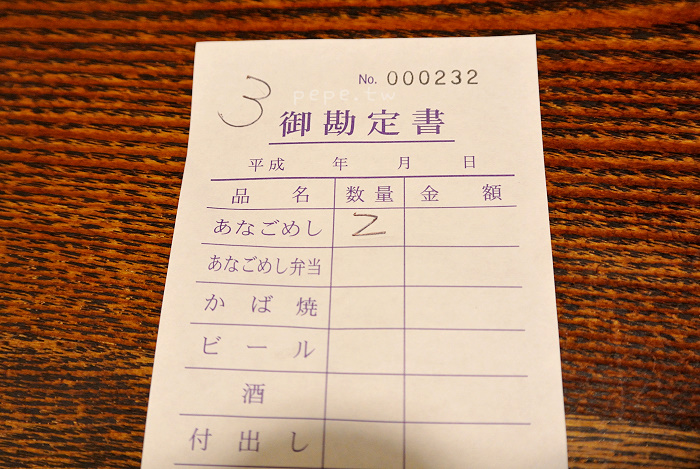 3
No. 000232
pepe.tw
御勘定書
平成 年 月 日
品名 数量 金額
あなごめし 2
あなごめし弁当
かば焼
ビール
酒
付出し